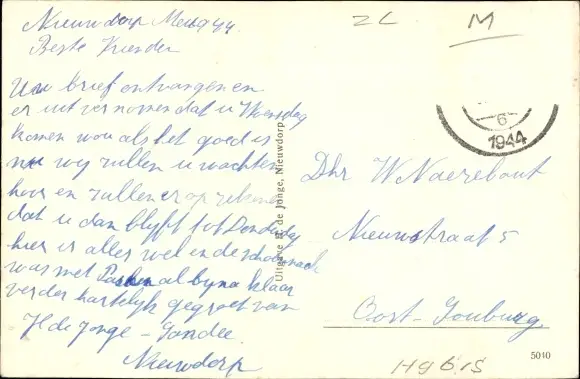 Nieuwdorp Mei 1944
Beste Vrienden
Uw brief ontvangen en
er uit vernomen dat u Woensdag
komen wou als het goed is
nu wy zullen u wachten
hoor en zullen er op rekenen
dat u dan blyft tot Donderdag
hier is alles wel en de
was met al byna klaar
verder hartelyk gegroet van
J de Jonge - Zandee
Nieuwdorp
Uitgave de Jonge, Nieuwdorp
ZL
M
6
1944
Dhr W Naerebout
Nieuwstraat 5
Oost-Souburg
5040
Hgb.15